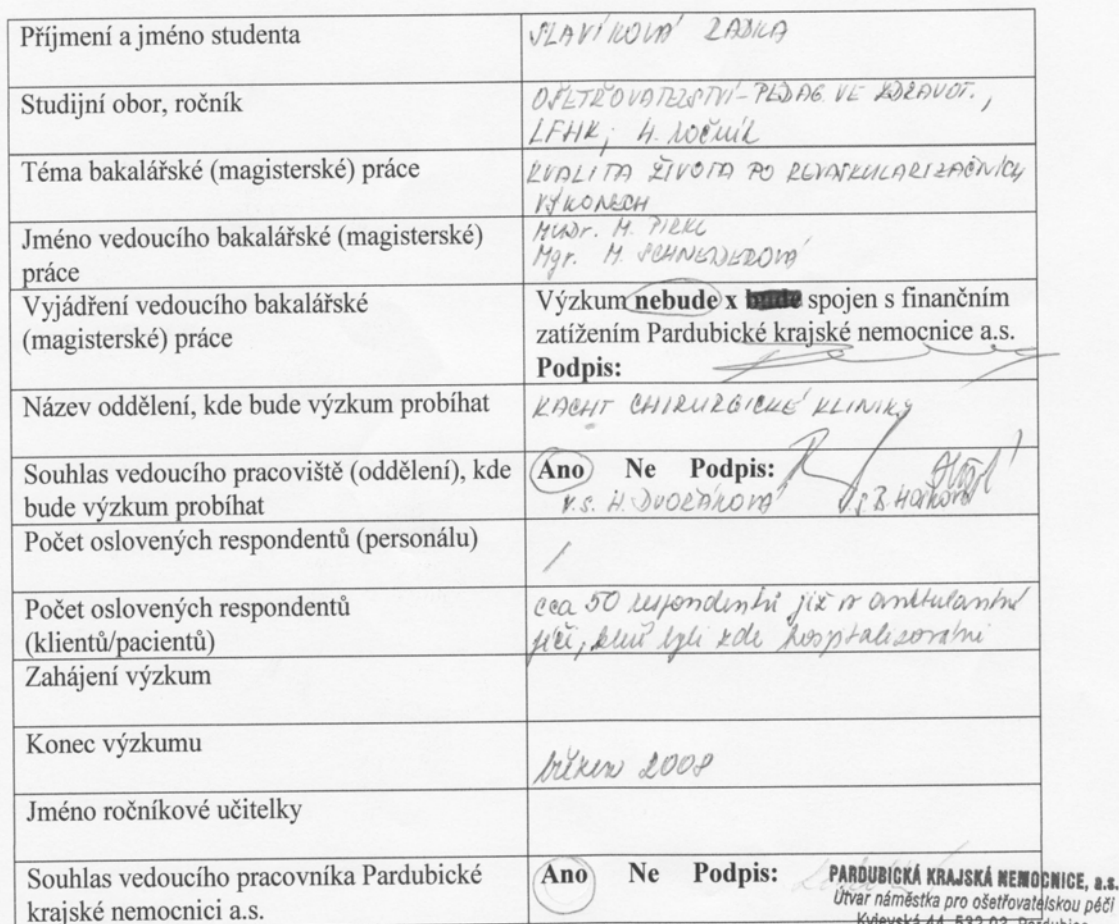 Příjmení a jméno studenta
SLAVÍKOVÁ RADKA
Studijní obor, ročník
OŠETŘOVATELSTVÍ-PEDAG. VE ZDRAVOT.,
LFHK, 4. ročník
Téma bakalářské (magisterské) práce
KVALITA ŽIVOTA PO REVASKULARIZAČNÍCH
VÝKONECH
Jméno vedoucího bakalářské (magisterské)
práce
MUDr. M. PIRKL
Mgr. M. SCHNEIDEROVÁ
Vyjádření vedoucího bakalářské
(magisterské) práce
Výzkum nebude x bude spojen s finančním
zatížením Pardubické krajské nemocnice a.s.
Podpis:
Název oddělení, kde bude výzkum probíhat
KACHT CHIRURGICKÉ KLINIKY
Souhlas vedoucího pracoviště (oddělení), kde
bude výzkum probíhat
Ano Ne Podpis:
V.S. H. DVOŘÁKOVÁ
Počet oslovených respondentů (personálu)
/
Počet oslovených respondentů
(klientů/pacientů)
cca 50 respondentů již v ambulantní
péči, kteří byli zde hospitalizováni
Zahájení výzkum
Konec výzkumu
březen 2008
Jméno ročníkové učitelky
Souhlas vedoucího pracovníka Pardubické
krajské nemocnici a.s.
Ano Ne Podpis:
PARDUBICKÁ KRAJSKÁ NEMOCNICE, a.s.
Útvar náměstka pro ošetřovatelskou péči
Kyjevská 44, 532 03 Pardubice